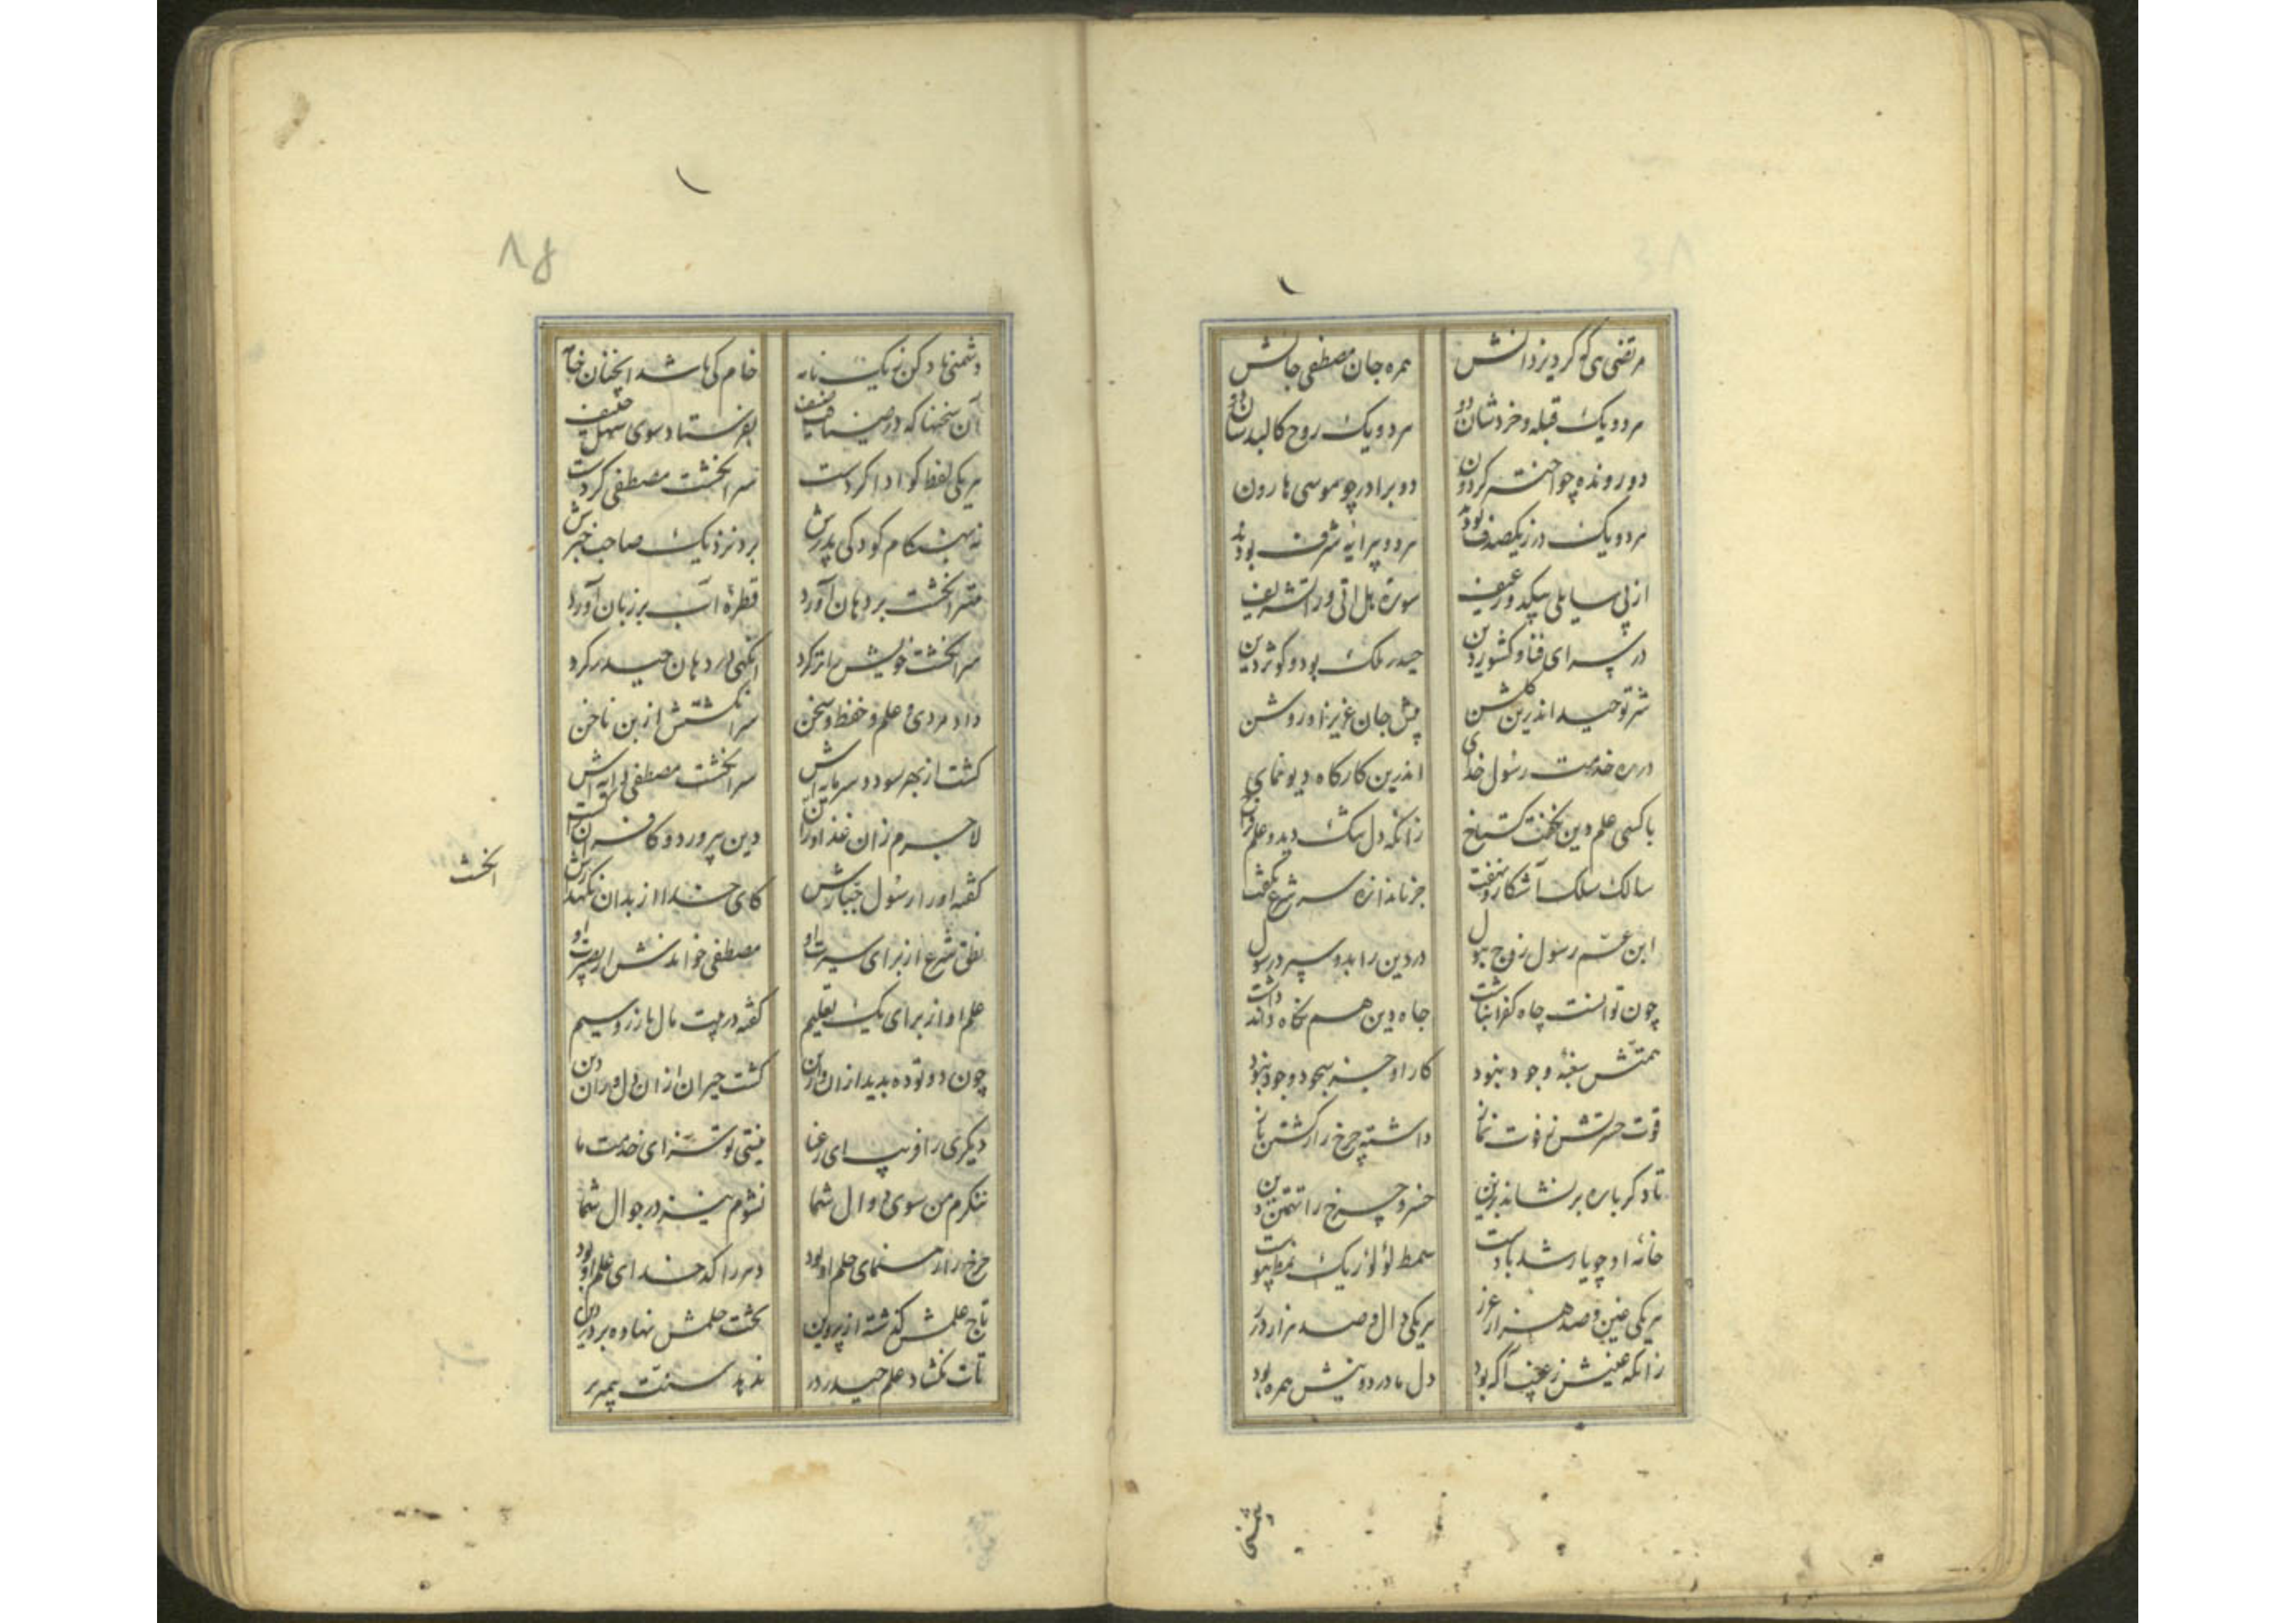 مرتضی ای که کرد یزدانش همره جان مصطفی جانش
هر دو یک قبله و خردشان دو هر دو یک روح کالبدشان دو
دو رونده چو اختر گردون دو برادر چو موسی هارون
هر دو یک در ز یکصدف بودند هر دو پیرایه شرف بودند
از پی سایلی بیکدو رغیف سوره هل اتی ورا تشریف
در سرای فنا و کشور دین حیدر ملک بود و کوثر دین
سر توحید اندرین کلشن پیش جان عزیز او روشن
در ره خدمت رسول خدای اندرین کارگاه دیو نمای
با کسی علم دین نکفت کستاخ زانکه دل تنگ دید و علم فراخ
سالک سلک آشکار و نهفت جز باندازه سر شرع نگفت
ابن عم رسول زوج بتول در دین را بدو سپرد رسول
چون توانست چاه کفر انباشت جاه دین هم نگاه داند داشت
همتش سغبه وجود نبود کار او جز سجود و جود نبود
قوت حسرتش ز فوت نماز داشته چرخ را ز کشتن باز
تا دکر باره بر نشاند بزین خسرو چرخ را تهمتن دین
خانه او چو پار شد بادست سمط لؤلؤ ز یک نمط پیوست
هر یکی ضین و صد هزار عزز هر یکی دال و صد هزار درر
زانکه عینش ز عیب آگه بود دل ما در دو بینش همره بود
بشنی
۸۵
دشمنی نهاد کن یک نامه خام کی باشد اینچنان خامه
آن سخنها که در میان ضعیف بفرستاد سوی سهل حنیف
هر یکی لفظ کو ادا کردست سر انگشت مصطفی کردست
نه بهنگام کودکی پدرش برد نزدیک صاحب خبرش
مهتر انگشت بر دهان آورد قطره آب بر زبان آورد
سر انگشت خویش را تر کرد انگهی در دهان حیدر کرد
داد مردی و علم و حفظ و سخن سر انگشتش از بن ناخن
کشت از بهر سود و سرمایه اش سر انگشت مصطفی دایه اش
لاجرم زان غذا و را آن دین پرورد و کافران
گفته او را رسول جبارش کای خدا از بدان نگهدارش
نطق شرع از برای سیرت او مصطفی خواندش از بصیرت او
علم او از برای یک تعلیم گفته در بیت مال با زر و سیم
چون دو توده بدید از ان و ازین گشت حیران از ان دل و ران دین
دیگری را فریب ای رعنا نیستی تو سزای خدمت ما
ننگرم من سوی دوال شما نشوم نیز در جوال شما
چرخ را رهنمای حلم او بود دهر را کدخدای علم او بود
تاج علمش گذشته از پروین تخت حلمش نهاده بر در دین
تات نگشاد علم حیدر در ندهد سنت پیمبر بر
انگشت